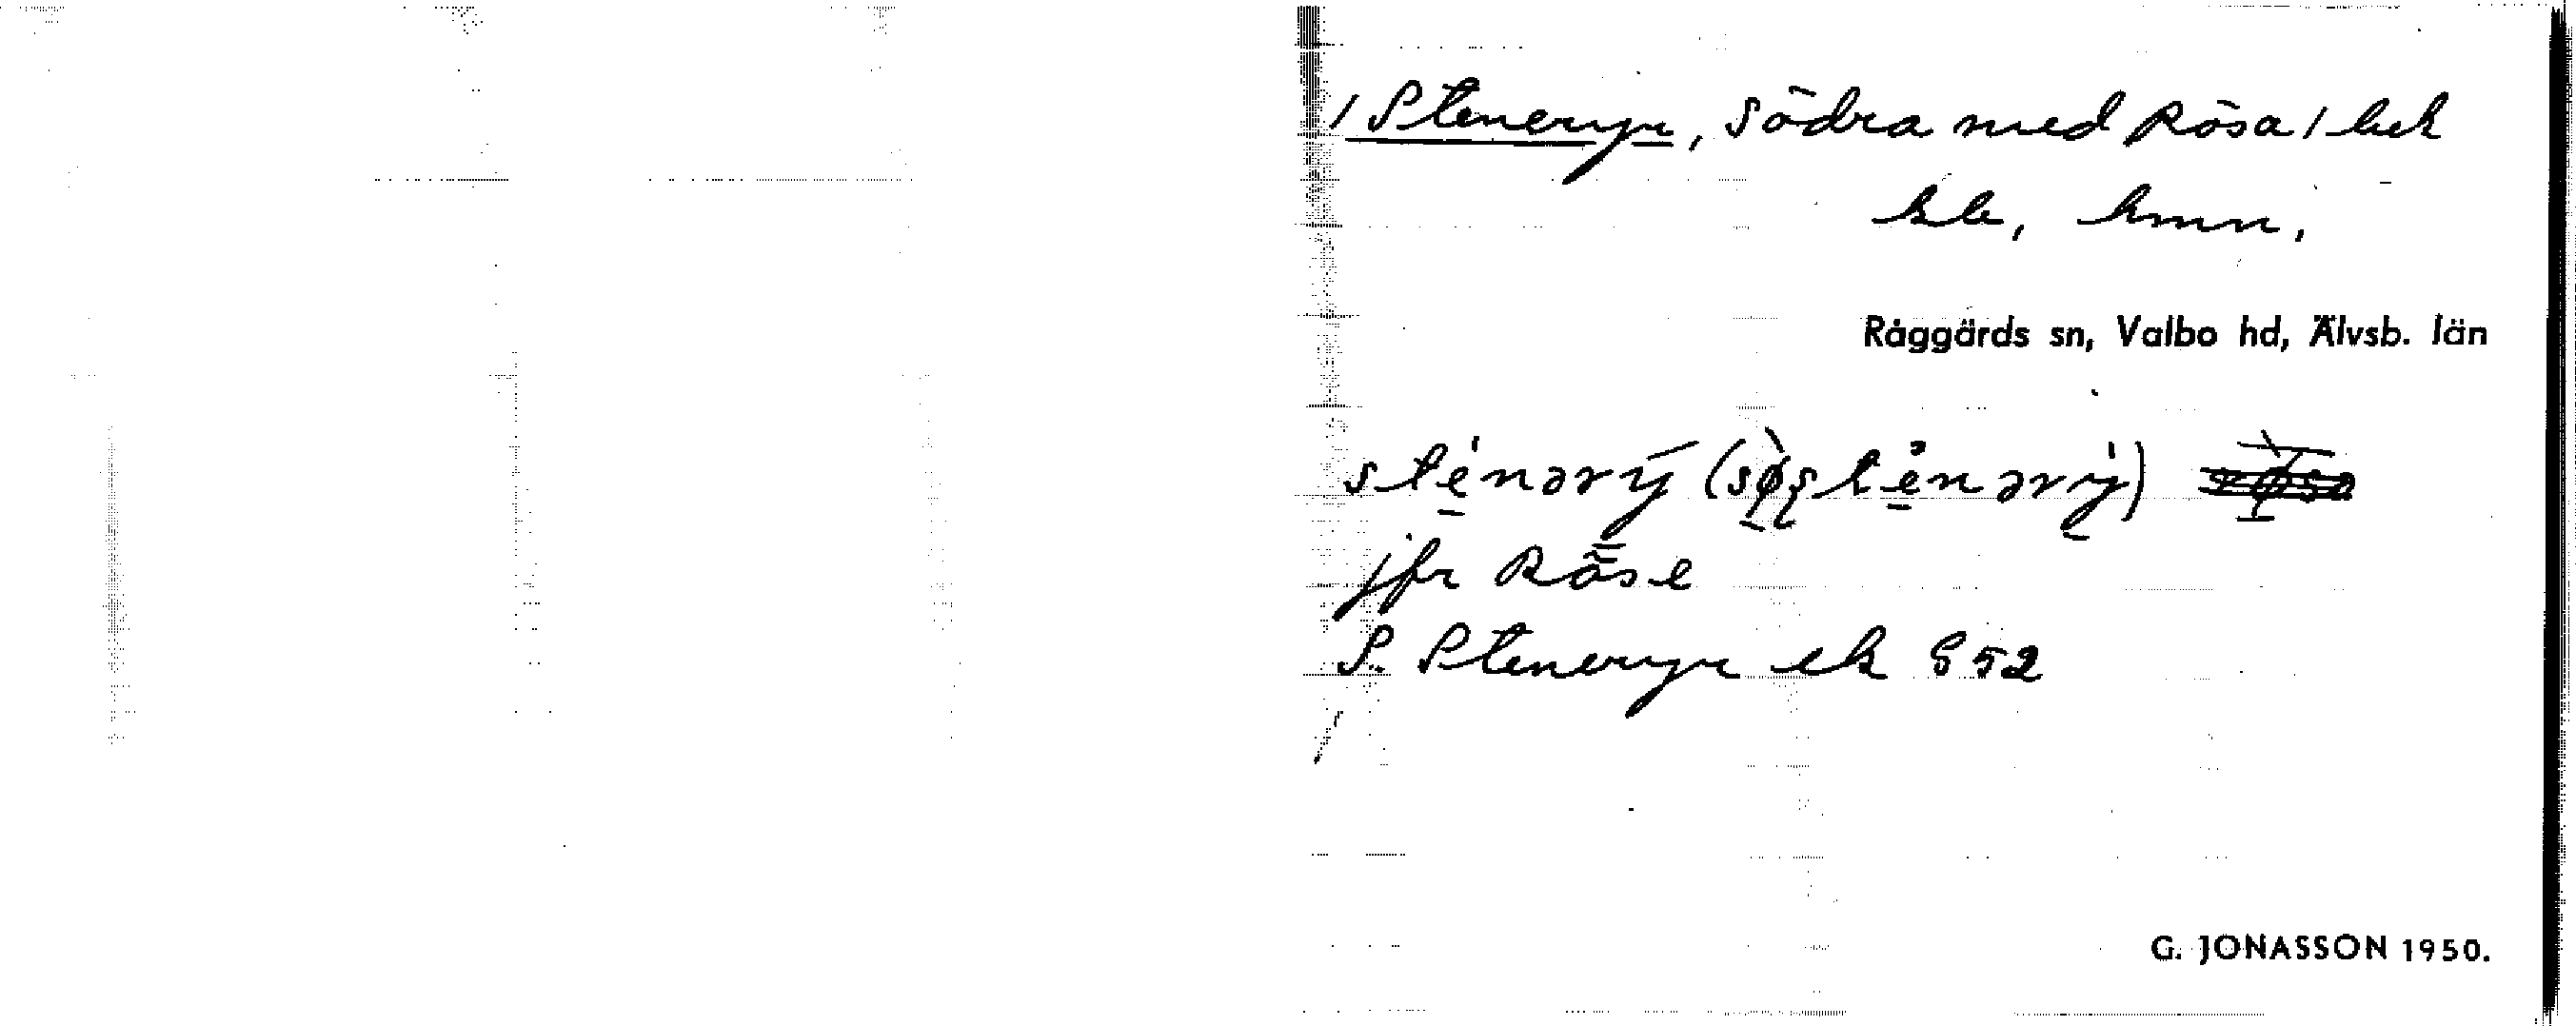 / Steneryr, södra med Rösa /
Råggärds sn, Valbo hd, Älvsb. län
sténərý (søstenərý)
jfr Röse
S. Steneryr ek S52
G. JONASSON 1950.